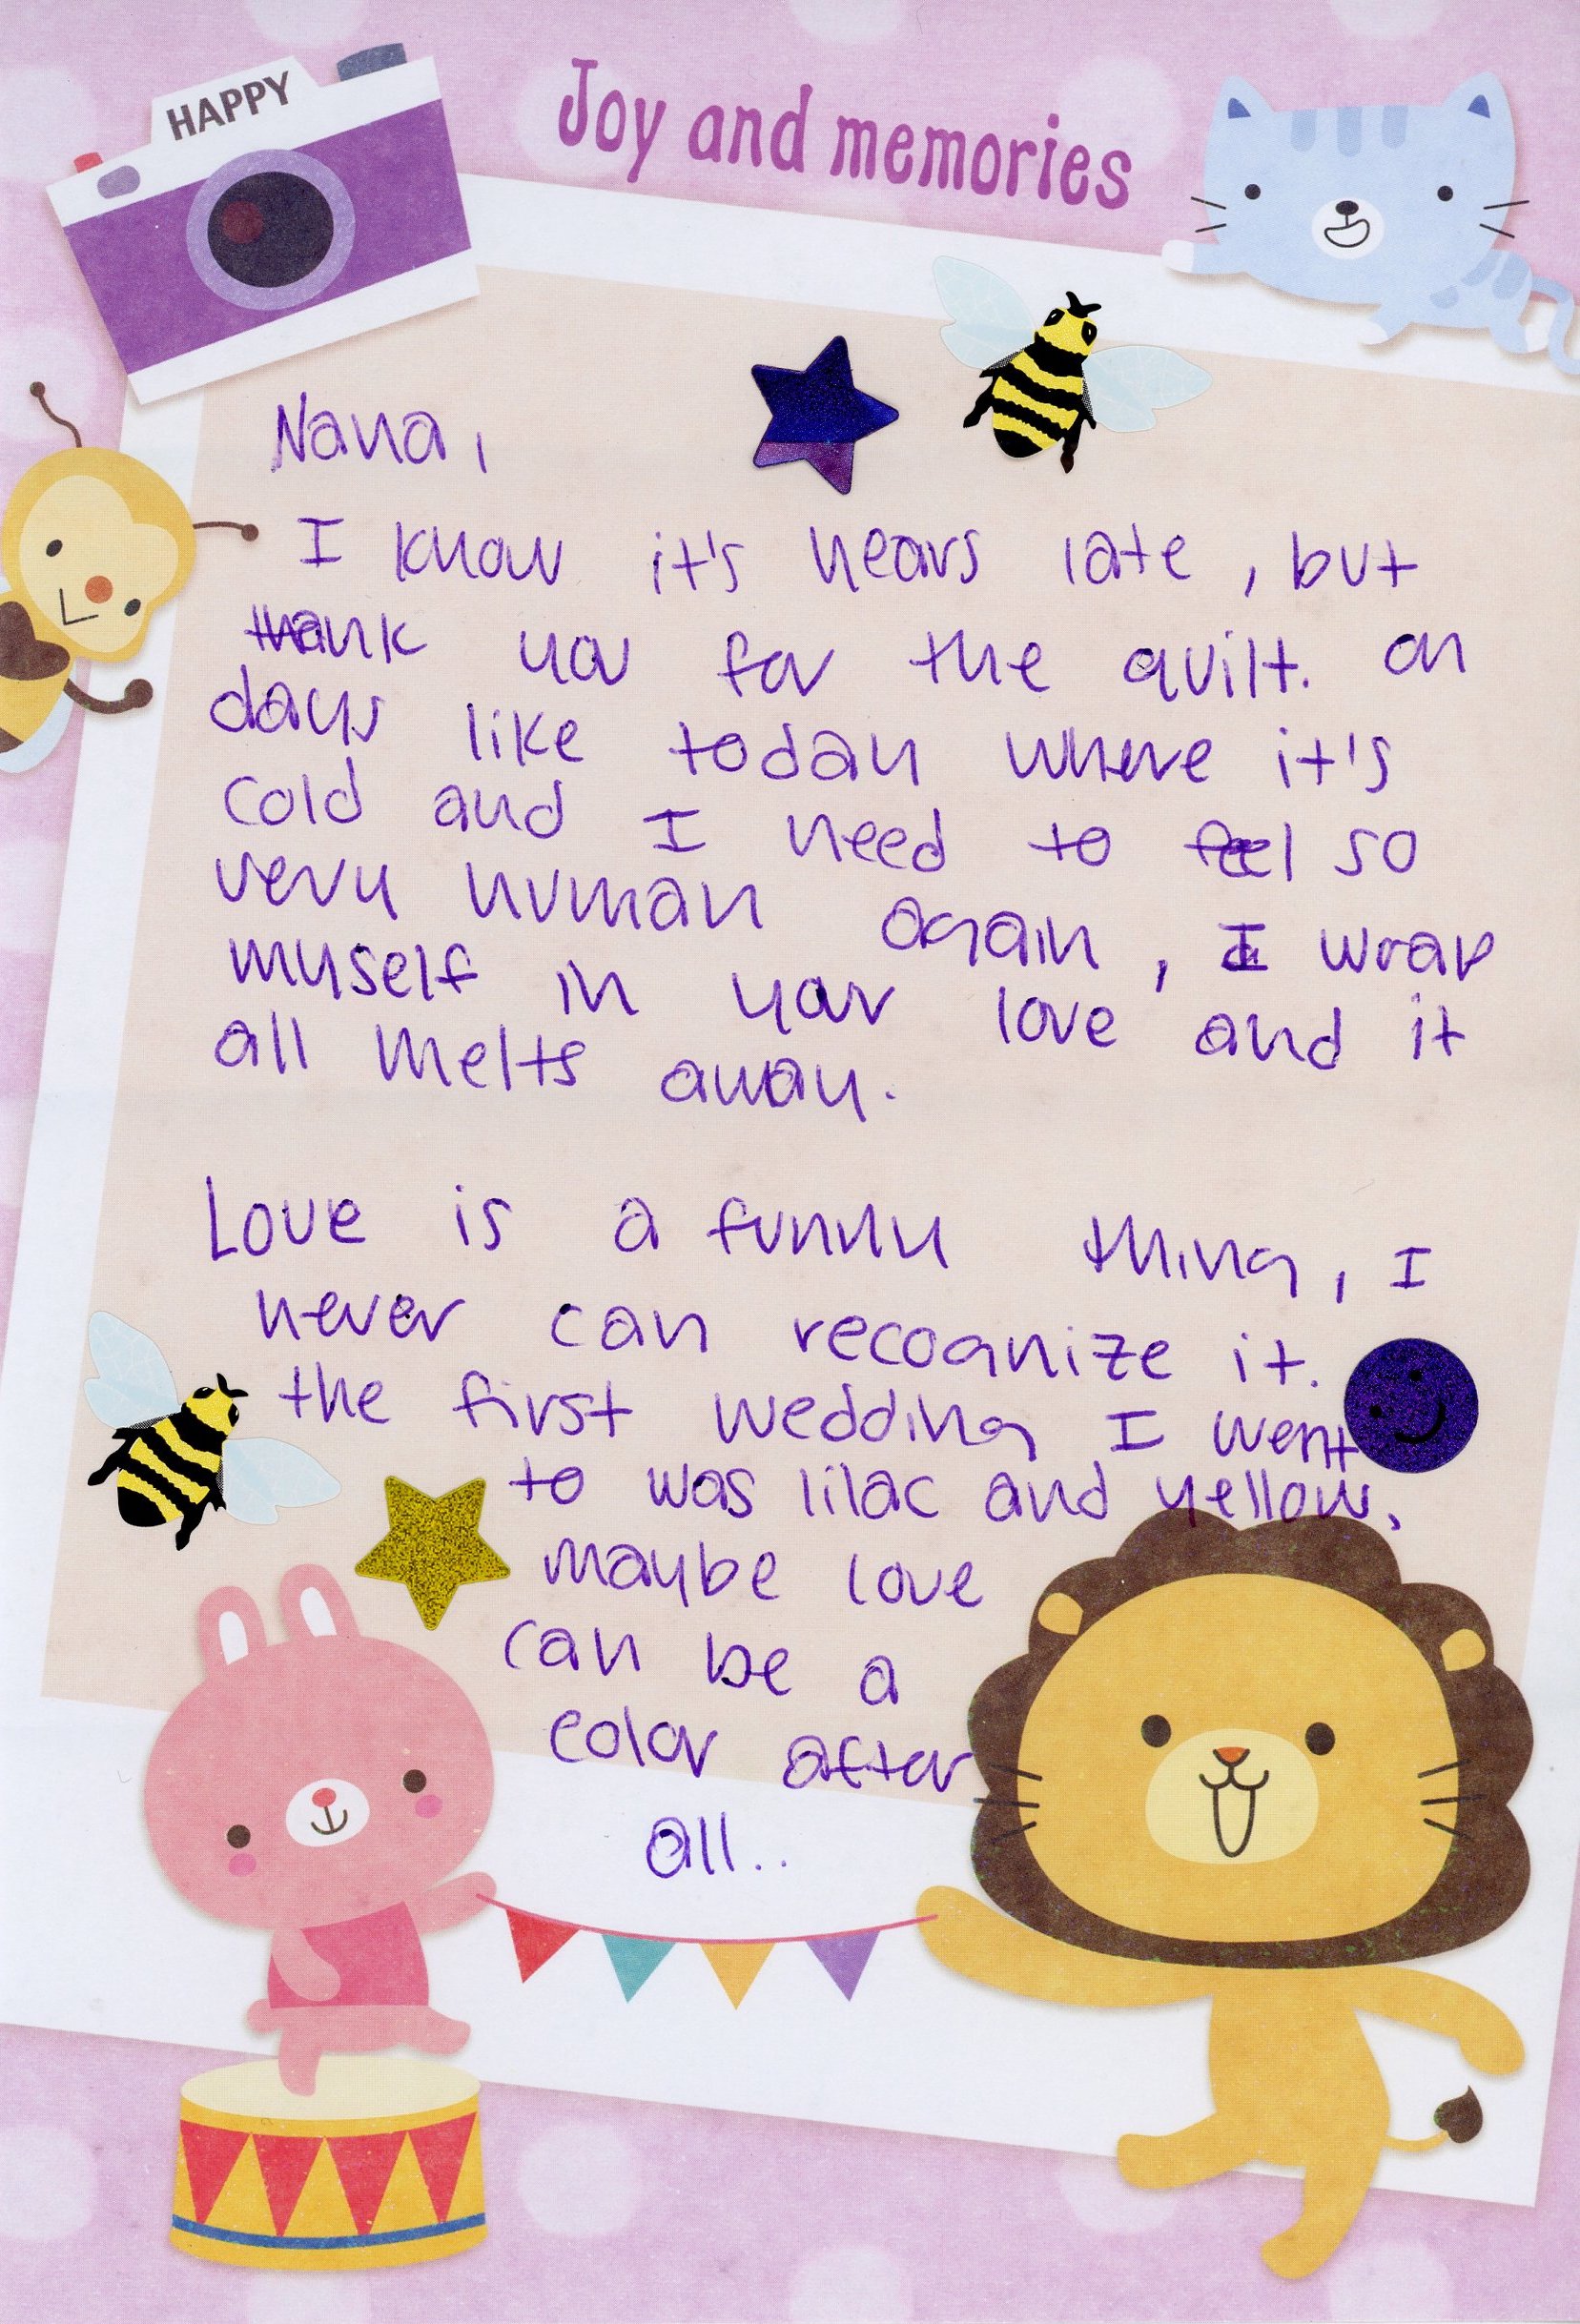 HAPPY
Joy and memories
Nana,
I know it's years late, but
thank you for the quilt. on
days like today where it's
cold and I need to feel so
very human again, I wrap
myself in your love and it
all melts away.
Love is a funny thing, I
never can recognize it.
the first wedding I went
to was lilac and yellow,
maybe love
can be a
color after
all..